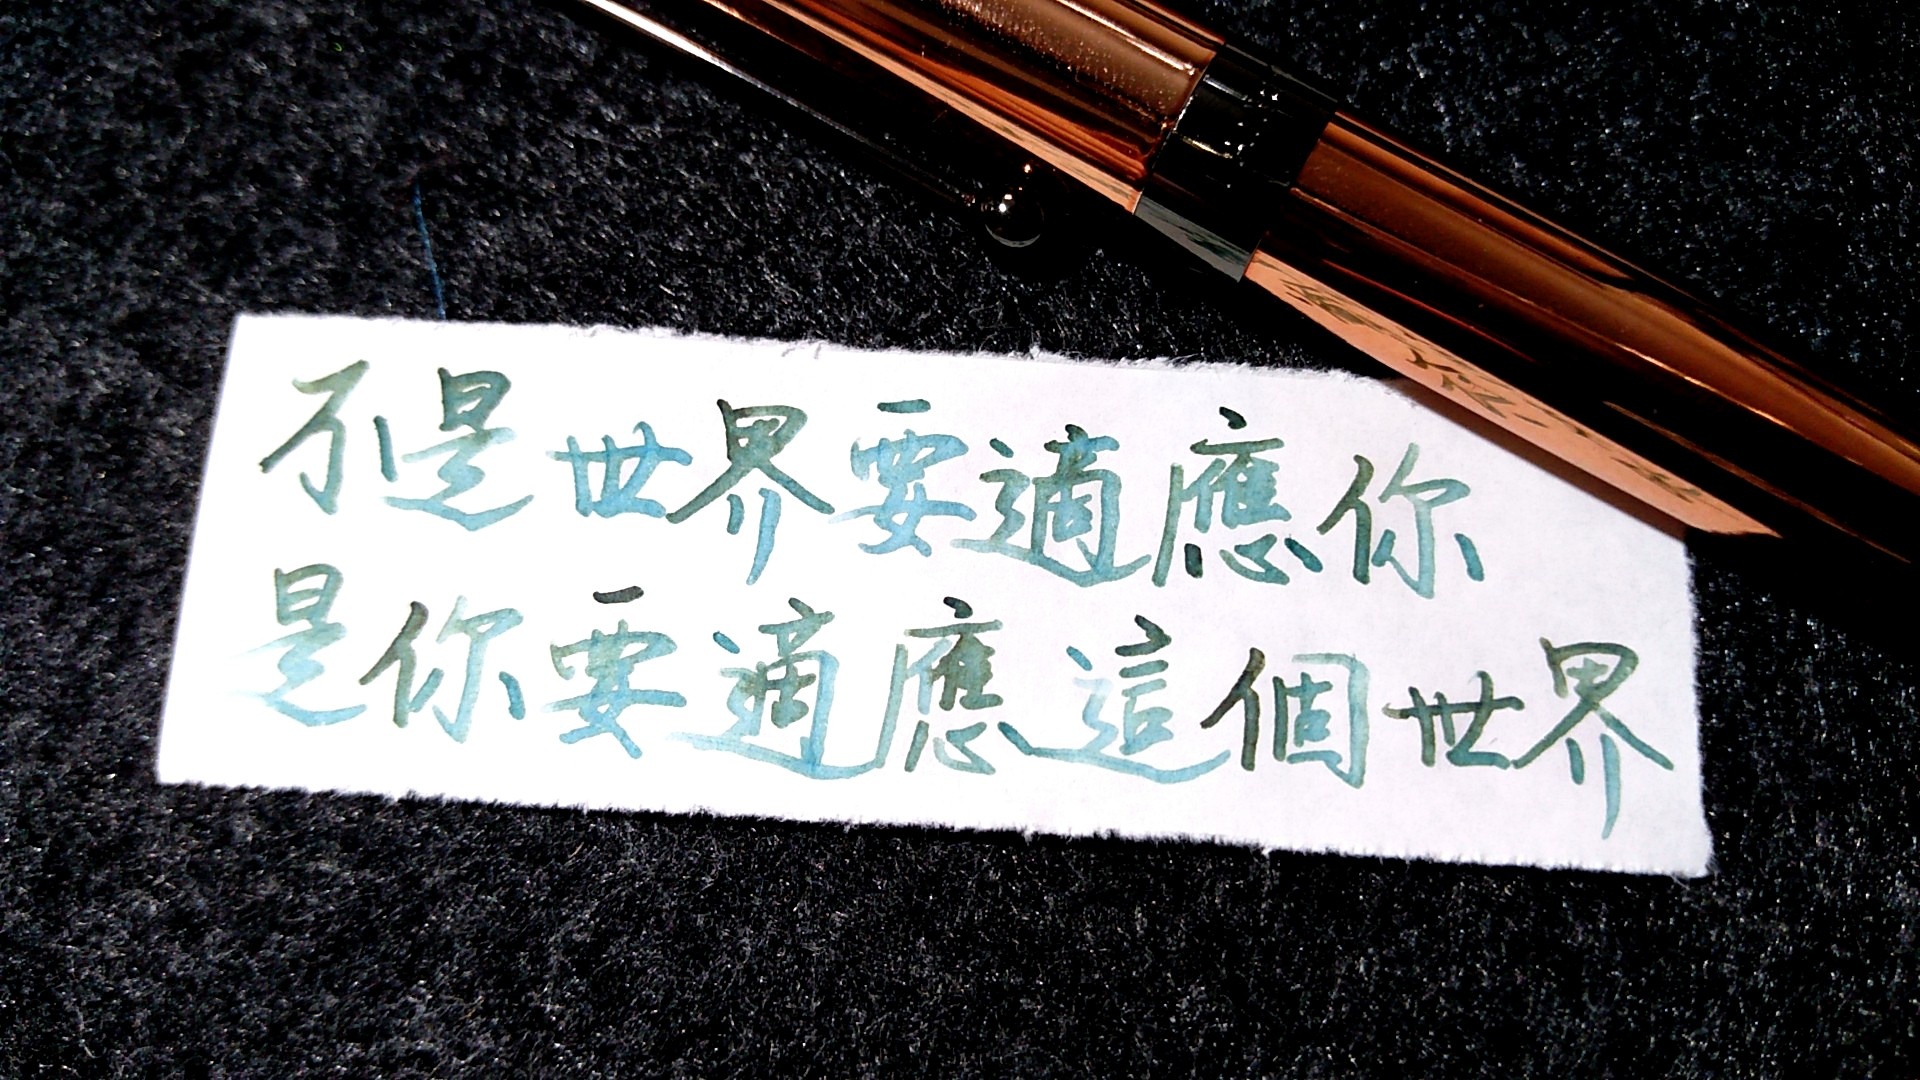 不是世界要適應你
是你要適應這個世界